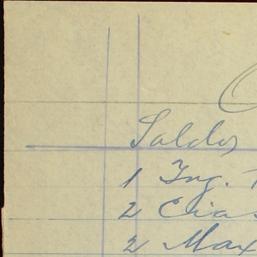 Saldos
1 Ing.
2 Elias
2 Max